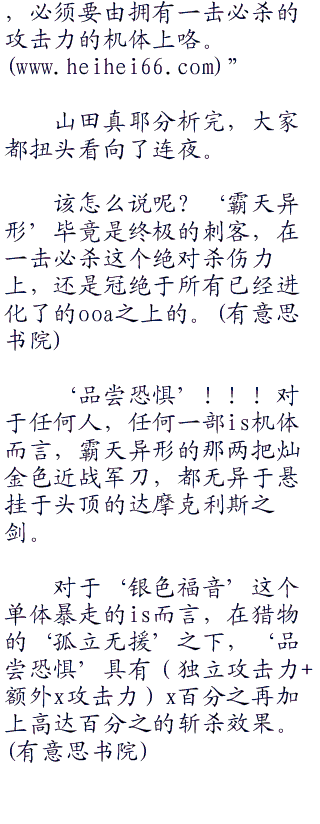 ，必须要由拥有一击必杀的
攻击力的机体上咯。
(www.heihei66.com)”
山田真耶分析完，大家
都扭头看向了连夜。
该怎么说呢？‘霸天异
形’毕竟是终极的刺客，在
一击必杀这个绝对杀伤力
上，还是冠绝于所有已经进
化了的ooa之上的。(有意思
书院)
‘品尝恐惧’！！！对
于任何人，任何一部is机体
而言，霸天异形的那两把灿
金色近战军刀，都无异于悬
挂于头顶的达摩克利斯之
剑。
对于‘银色福音’这个
单体暴走的is而言，在猎物
的‘孤立无援’之下，‘品
尝恐惧’具有（独立攻击力+
额外x攻击力）x百分之再加
上高达百分之的斩杀效果。
(有意思书院)